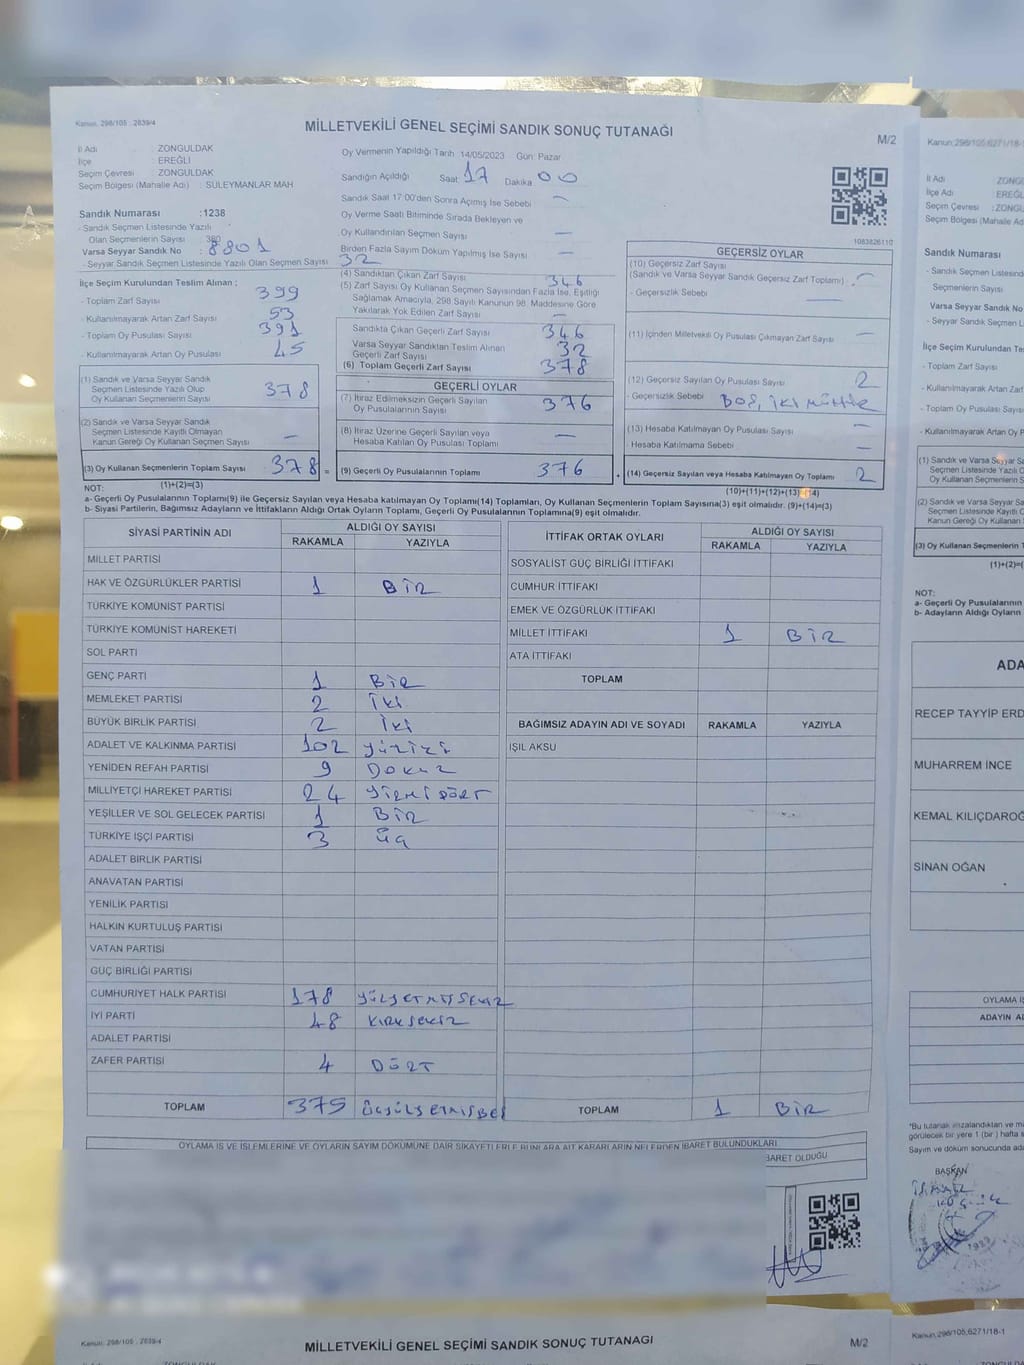 Kanun, 298/105 ; 2839/4
MİLLETVEKİLİ GENEL SEÇİMİ SANDIK SONUÇ TUTANAĞI
M/2
İl Adı : ZONGULDAK
İlçe : EREĞLİ
Seçim Çevresi : ZONGULDAK
Seçim Bölgesi (Mahalle Adı) : SÜLEYMANLAR MAH
Sandık Numarası :1238
- Sandık Seçmen Listesinde Yazılı
Olan Seçmenlerin Sayısı : 380
Varsa Seyyar Sandık No : 8801
- Seyyar Sandık Seçmen Listesinde Yazılı Olan Seçmen Sayısı 32
Oy Vermenin Yapıldığı Tarih 14/05/2023 Gün: Pazar
Sandığın Açıldığı Saat: 17 Dakika 00
Sandık Saat 17:00'den Sonra Açılmış İse Sebebi —
Oy Verme Saati Bitiminde Sırada Bekleyen ve
Oy Kullandırılan Seçmen Sayısı —
Birden Fazla Sayım Döküm Yapılmış İse Sayısı —
1083826110
İlçe Seçim Kurulundan Teslim Alınan ;
- Toplam Zarf Sayısı 399
- Kullanılmayarak Artan Zarf Sayısı 53
- Toplam Oy Pusulası Sayısı 391
- Kullanılmayarak Artan Oy Pusulası 45
(1) Sandık ve Varsa Seyyar Sandık
Seçmen Listesinde Yazılı Olup
Oy Kullanan Seçmenlerin Sayısı 378
(2) Sandık ve Varsa Seyyar Sandık
Seçmen Listesinde Kayıtlı Olmayan
Kanun Gereği Oy Kullanan Seçmen Sayısı —
(3) Oy Kullanan Seçmenlerin Toplam Sayısı 378 =
(1)+(2)=(3)
(4) Sandıktan Çıkan Zarf Sayısı 346
(5) Zarf Sayısı Oy Kullanan Seçmen Sayısından Fazla İse, Eşitliği
Sağlamak Amacıyla, 298 Sayılı Kanunun 98. Maddesine Göre
Yakılarak Yok Edilen Zarf Sayısı —
Sandıkta Çıkan Geçerli Zarf Sayısı 346
Varsa Seyyar Sandıktan Teslim Alınan
Geçerli Zarf Sayısı 32
(6) Toplam Geçerli Zarf Sayısı 378
GEÇERLİ OYLAR
(7) İtiraz Edilmeksizin Geçerli Sayılan
Oy Pusulalarının Sayısı 376
(8) İtiraz Üzerine Geçerli Sayılan veya
Hesaba Katılan Oy Pusulası Toplamı —
(9) Geçerli Oy Pusulalarının Toplamı 376 +
GEÇERSİZ OYLAR
(10) Geçersiz Zarf Sayısı
(Sandık ve Varsa Seyyar Sandık Geçersiz Zarf Toplamı) : —
- Geçersizlik Sebebi —
(11) İçinden Milletvekili Oy Pusulası Çıkmayan Zarf Sayısı —
(12) Geçersiz Sayılan Oy Pusulası Sayısı 2
- Geçersizlik Sebebi BOŞ, İKİ MÜHÜR
(13) Hesaba Katılmayan Oy Pusulası Sayısı —
Hesaba Katılmama Sebebi —
(14) Geçersiz Sayılan veya Hesaba Katılmayan Oy Toplamı 2
(10)+(11)+(12)+(13)=(14)
NOT:
a- Geçerli Oy Pusulalarının Toplamı(9) ile Geçersiz Sayılan veya Hesaba Katılmayan Oy Toplamı(14) Toplamları, Oy Kullanan Seçmenlerin Toplam Sayısına(3) eşit olmalıdır. (9)+(14)=(3)
b- Siyasi Partilerin, Bağımsız Adayların ve İttifakların Aldığı Ortak Oyların Toplamı, Geçerli Oy Pusulalarının Toplamına(9) eşit olmalıdır.
SİYASİ PARTİNİN ADI ALDIĞI OY SAYISI
RAKAMLA YAZIYLA
MİLLET PARTİSİ
HAK VE ÖZGÜRLÜKLER PARTİSİ 1 BİR
TÜRKİYE KOMÜNİST PARTİSİ
TÜRKİYE KOMÜNİST HAREKETİ
SOL PARTİ
GENÇ PARTİ 1 BİR
MEMLEKET PARTİSİ 2 İKİ
BÜYÜK BİRLİK PARTİSİ 2 İKİ
ADALET VE KALKINMA PARTİSİ 102 yüziki
YENİDEN REFAH PARTİSİ 9 DOKUZ
MİLLİYETÇİ HAREKET PARTİSİ 24 YİRMİ DÖRT
YEŞİLLER VE SOL GELECEK PARTİSİ 1 BİR
TÜRKİYE İŞÇİ PARTİSİ 3 ÜÇ
ADALET BİRLİK PARTİSİ
ANAVATAN PARTİSİ
YENİLİK PARTİSİ
HALKIN KURTULUŞ PARTİSİ
VATAN PARTİSİ
GÜÇ BİRLİĞİ PARTİSİ
CUMHURİYET HALK PARTİSİ 178 YÜZYETMİŞSEKİZ
İYİ PARTİ 48 KIRKSEKİZ
ADALET PARTİSİ
ZAFER PARTİSİ 4 DÖRT
TOPLAM 375 ÜÇYÜZYETMİŞBEŞ
İTTİFAK ORTAK OYLARI ALDIĞI OY SAYISI
RAKAMLA YAZIYLA
SOSYALİST GÜÇ BİRLİĞİ İTTİFAKI
CUMHUR İTTİFAKI
EMEK VE ÖZGÜRLÜK İTTİFAKI
MİLLET İTTİFAKI 1 BİR
ATA İTTİFAKI
TOPLAM
BAĞIMSIZ ADAYIN ADI VE SOYADI RAKAMLA YAZIYLA
IŞIL AKSU
TOPLAM 1 BİR
OYLAMA İŞ VE İŞLEMLERİNE VE OYLARIN SAYIM DÖKÜMÜNE DAİR ŞİKAYETLERLE BUNLARA AİT KARARLARIN NELERDEN İBARET BULUNDUKLARI
BARET OLDUĞU
Kanun;298/105;6271/18-1
İl Adı : ZONG
İlçe Adı : EREĞ
Seçim Çevresi :ZONG
Seçim Bölgesi (Mahalle Ad
Sandık Numarası
- Sandık Seçmen Listesind
Seçmenlerin Sayısı
Varsa Seyyar Sandık No
- Seyyar Sandık Seçmen L
İlçe Seçim Kurulundan Te
- Toplam Zarf Sayısı
- Kullanılmayarak Artan Zarf
- Toplam Oy Pusulası Sayıs
- Kullanılmayarak Artan Oy
(1) Sandık ve Varsa Seyyar Sa
Seçmen Listesinde Yazılı O
Oy Kullanan Seçmenlerin S
(2) Sandık ve Varsa Seyyar Sa
Seçmen Listesinde Kayıtlı O
Kanun Gereği Oy Kullanan
(3) Oy Kullanan Seçmenlerin T
(1)+(2)=(
NOT:
a- Geçerli Oy Pusulalarının
b- Adayların Aldığı Oyların
ADA
RECEP TAYYİP ERD
MUHARREM İNCE
KEMAL KILIÇDAROĞ
SİNAN OĞAN
OYLAMA İŞ
ADAYIN AD
*Bu tutanak imzalandıktan ve m
görülecek bir yere 1 (bir) hafta s
Sayım ve döküm sonucunda ada
BAŞKAN
Kanun, 298/105 ; 2839/4
MİLLETVEKİLİ GENEL SEÇİMİ SANDIK SONUÇ TUTANAĞI
M/2
Kanun;298/105;6271/18-1